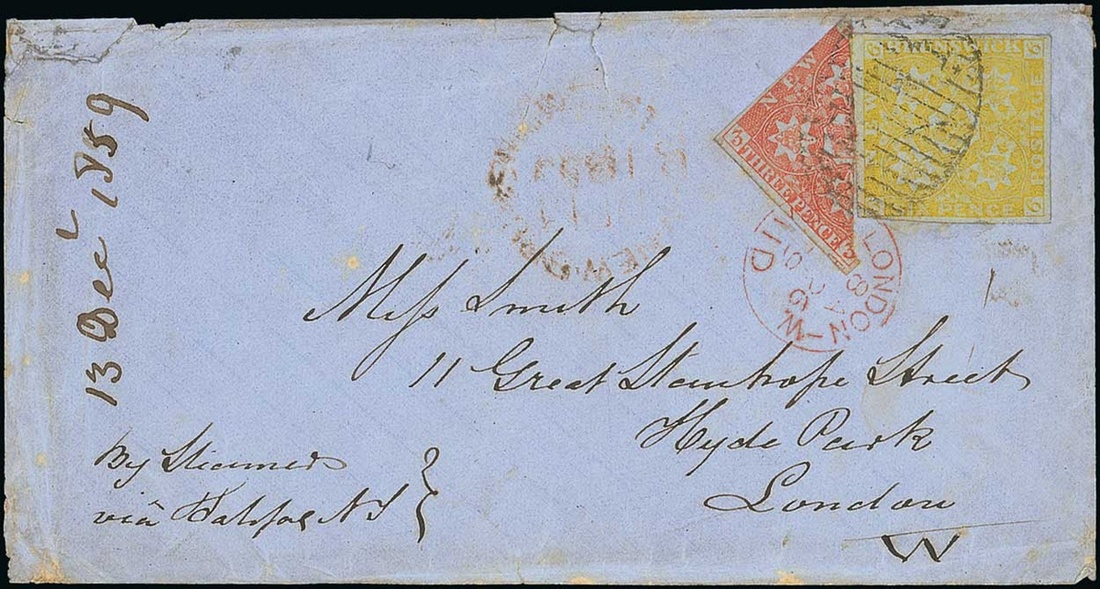 13 Decr 1859
NEW
THREE PENCE
3
3
BRUNSWICK
NEW
POSTAGE
SIX PENCE
6
6
6
LONDON-W
PAID
8
Miss Smith
11 Great Stanhope Street
Hyde Park
London
W
By Steamer
viâ Halifax NS